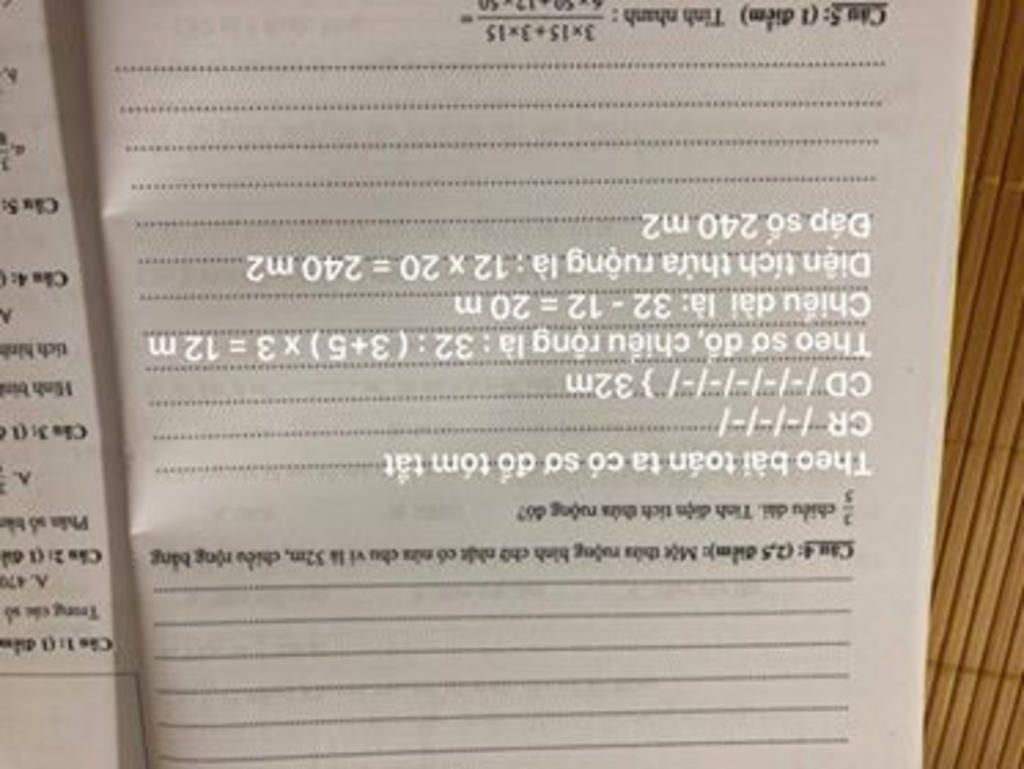 Câu 1: (1 điểm
Trong các số
A. 470
Câu 2: (1 điể
Phân số bằn
A.
Câu 3: (1 đ
Hình bình
tích hình
A
Câu 4: (
Câu 5:
a,
b,
Câu 4: (2,5 điểm): Một thửa ruộng hình chữ nhật có nửa chu vi là 32m, chiều rộng bằng
3/5 chiều dài. Tính diện tích thửa ruộng đó?
Theo bài toán ta có sơ đồ tóm tắt
CR /-/-/-/
CD /-/-/-/-/-/ } 32m
Theo sơ đồ, chiều rộng là : 32 : ( 3+5 ) x 3 = 12 m
Chiều dài là: 32 - 12 = 20 m
Diện tích thửa ruộng là : 12 x 20 = 240 m2
Đáp số 240 m2
Câu 5: (1 điểm) Tính nhanh : 3×15+3×15 / 6×50+12×50 =